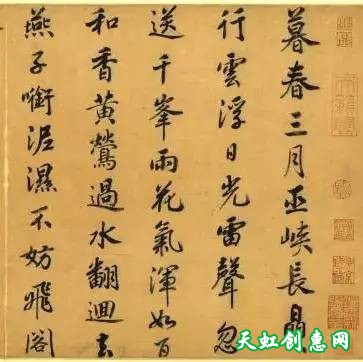 暮春三月巫峽長皛
行雲浮日光雷聲忽
送千峯雨花氣渾如百
和香黃鶯過水翻迴去
燕子啣泥濕不妨飛閣
天虹创意网